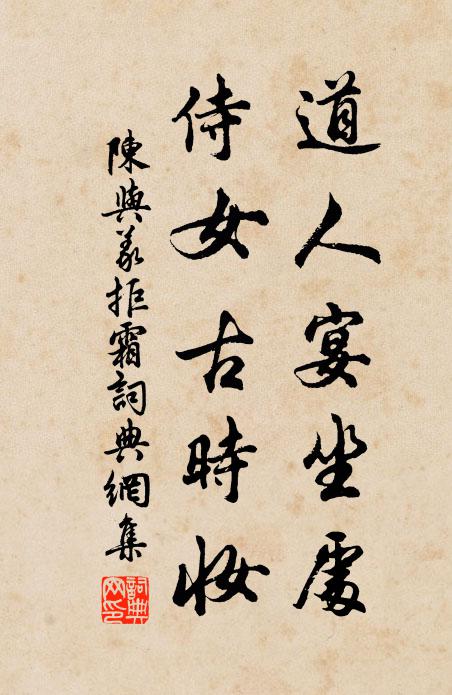 道人宴坐處
侍女古時妝
陳與義拒霜詞典網集
詞典網印